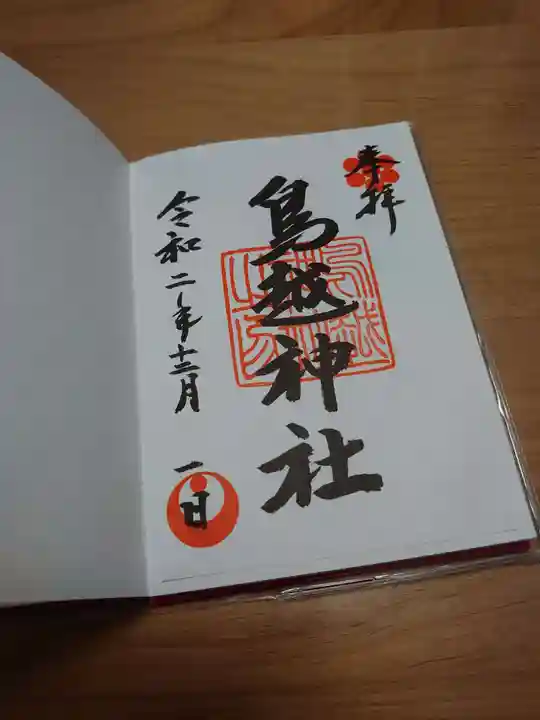 奉拝
鳥越神社
令和二年十二月
一日